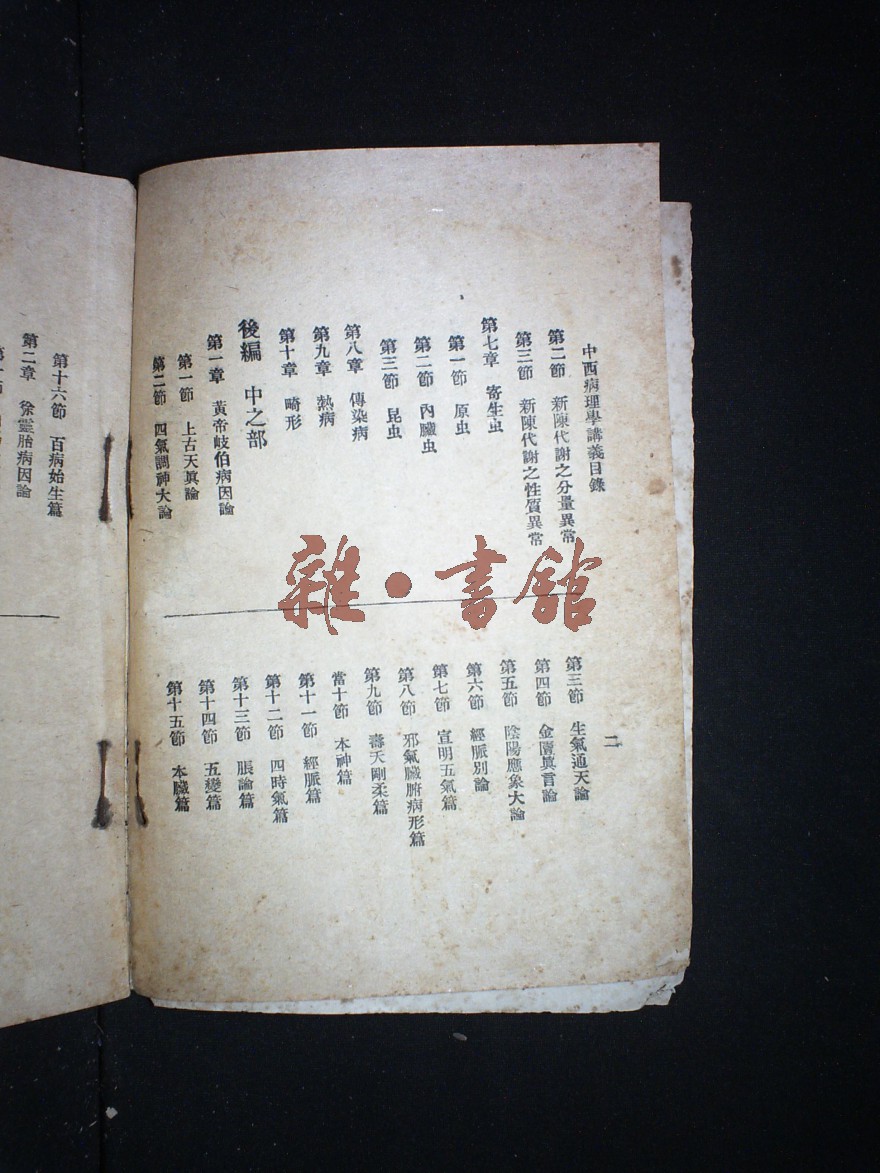 中西病理學講義目錄
第二節 新陳代謝之分量異常
第三節 新陳代謝之性質異常
第七章 寄生虫
第一節 原虫
第二節 內臟虫
第三節 昆虫
第八章 傳染病
第九章 熱病
第十章 畸形
後編 中之部
第一章 黃帝岐伯病因論
第一節 上古天眞論
第二節 四氣調神大論
二
第三節 生氣通天論
第四節 金匱眞言論
第五節 陰陽應象大論
第六節 經脈別論
第七節 宣明五氣篇
第八節 邪氣臟腑病形篇
第九節 壽夭剛柔篇
當十節 本神篇
第十一節 經脈篇
第十二節 四時氣篇
第十三節 脹論篇
第十四節 五變篇
第十五節 本臟篇
第十六節 百病始生篇
第二章 徐靈胎病因論
雜·書館